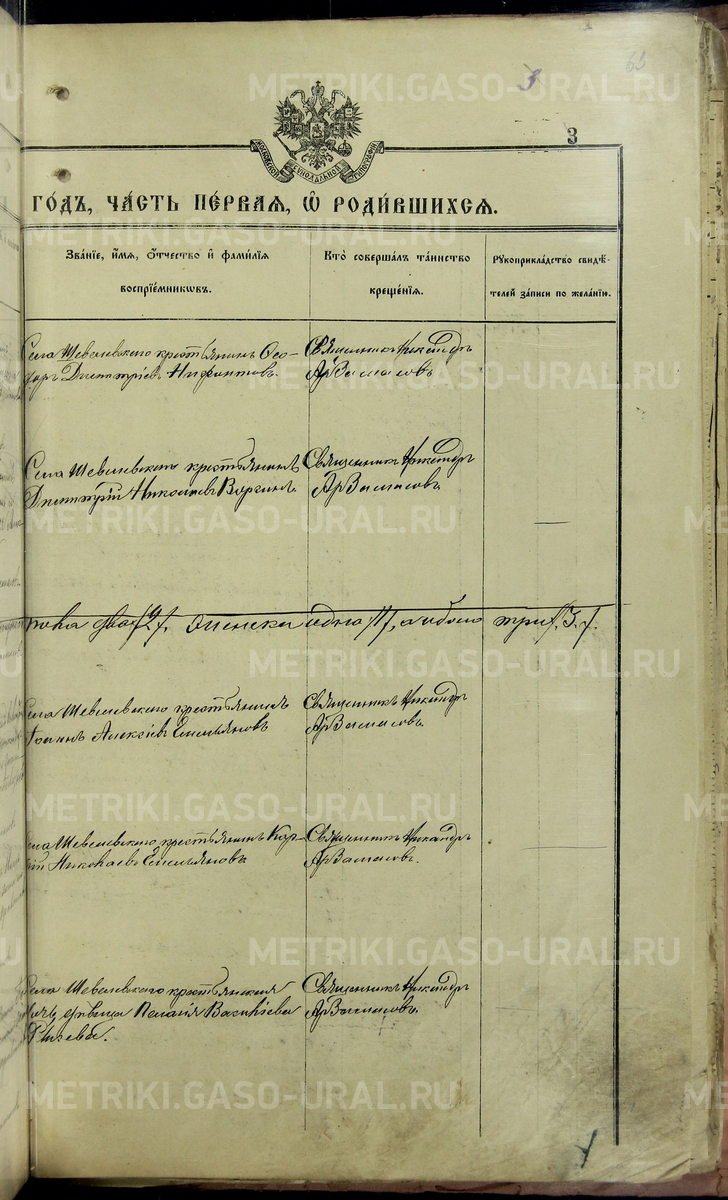 63
3
3
МОСКОВСКОЙ СѴНОДАЛЬНОЙ ТИПОГРАФІИ
ГО́ДЪ, ЧА́СТЬ ПЕ́РВАЯ, Ѽ РОДИ́ВШИХСЯ.
Зва́нїе, и́мя, о́тчество и҆ фами́лїя воспрїе́мникωвъ.
Кто̀ соверша́лъ та́инство креще́нїя.
Рꙋкоприкла́дство свидѣ́телей за́писи по жела́нїю.
Села Шевелевскаго крестьянинъ Ѳео-
доръ Димитріевъ Нифонтовъ.
Священникъ Никандръ
Арвамасовъ
Села Шевелевскаго крестьянинъ
Димитрій Николаевъ Вергинъ.
Священникъ Никандръ
Арвамасовъ
пола два /2/, женска одна /1/, а обоего три /3/.
Села Шевелевскаго крестьянинъ
Іоаннъ Алексіевъ Емельяновъ
Священникъ Никандръ
Арвамасовъ.
Села Шевелевскаго крестьянинъ
Николаевъ Емельяновъ
Священникъ Никандръ
Арвамасовъ.
Села Шевелевскаго крестьянская
дѣвица Пелагія Васильева
Священникъ Никандръ
Арвамасовъ.
METRIKI.GASO-URAL.RU